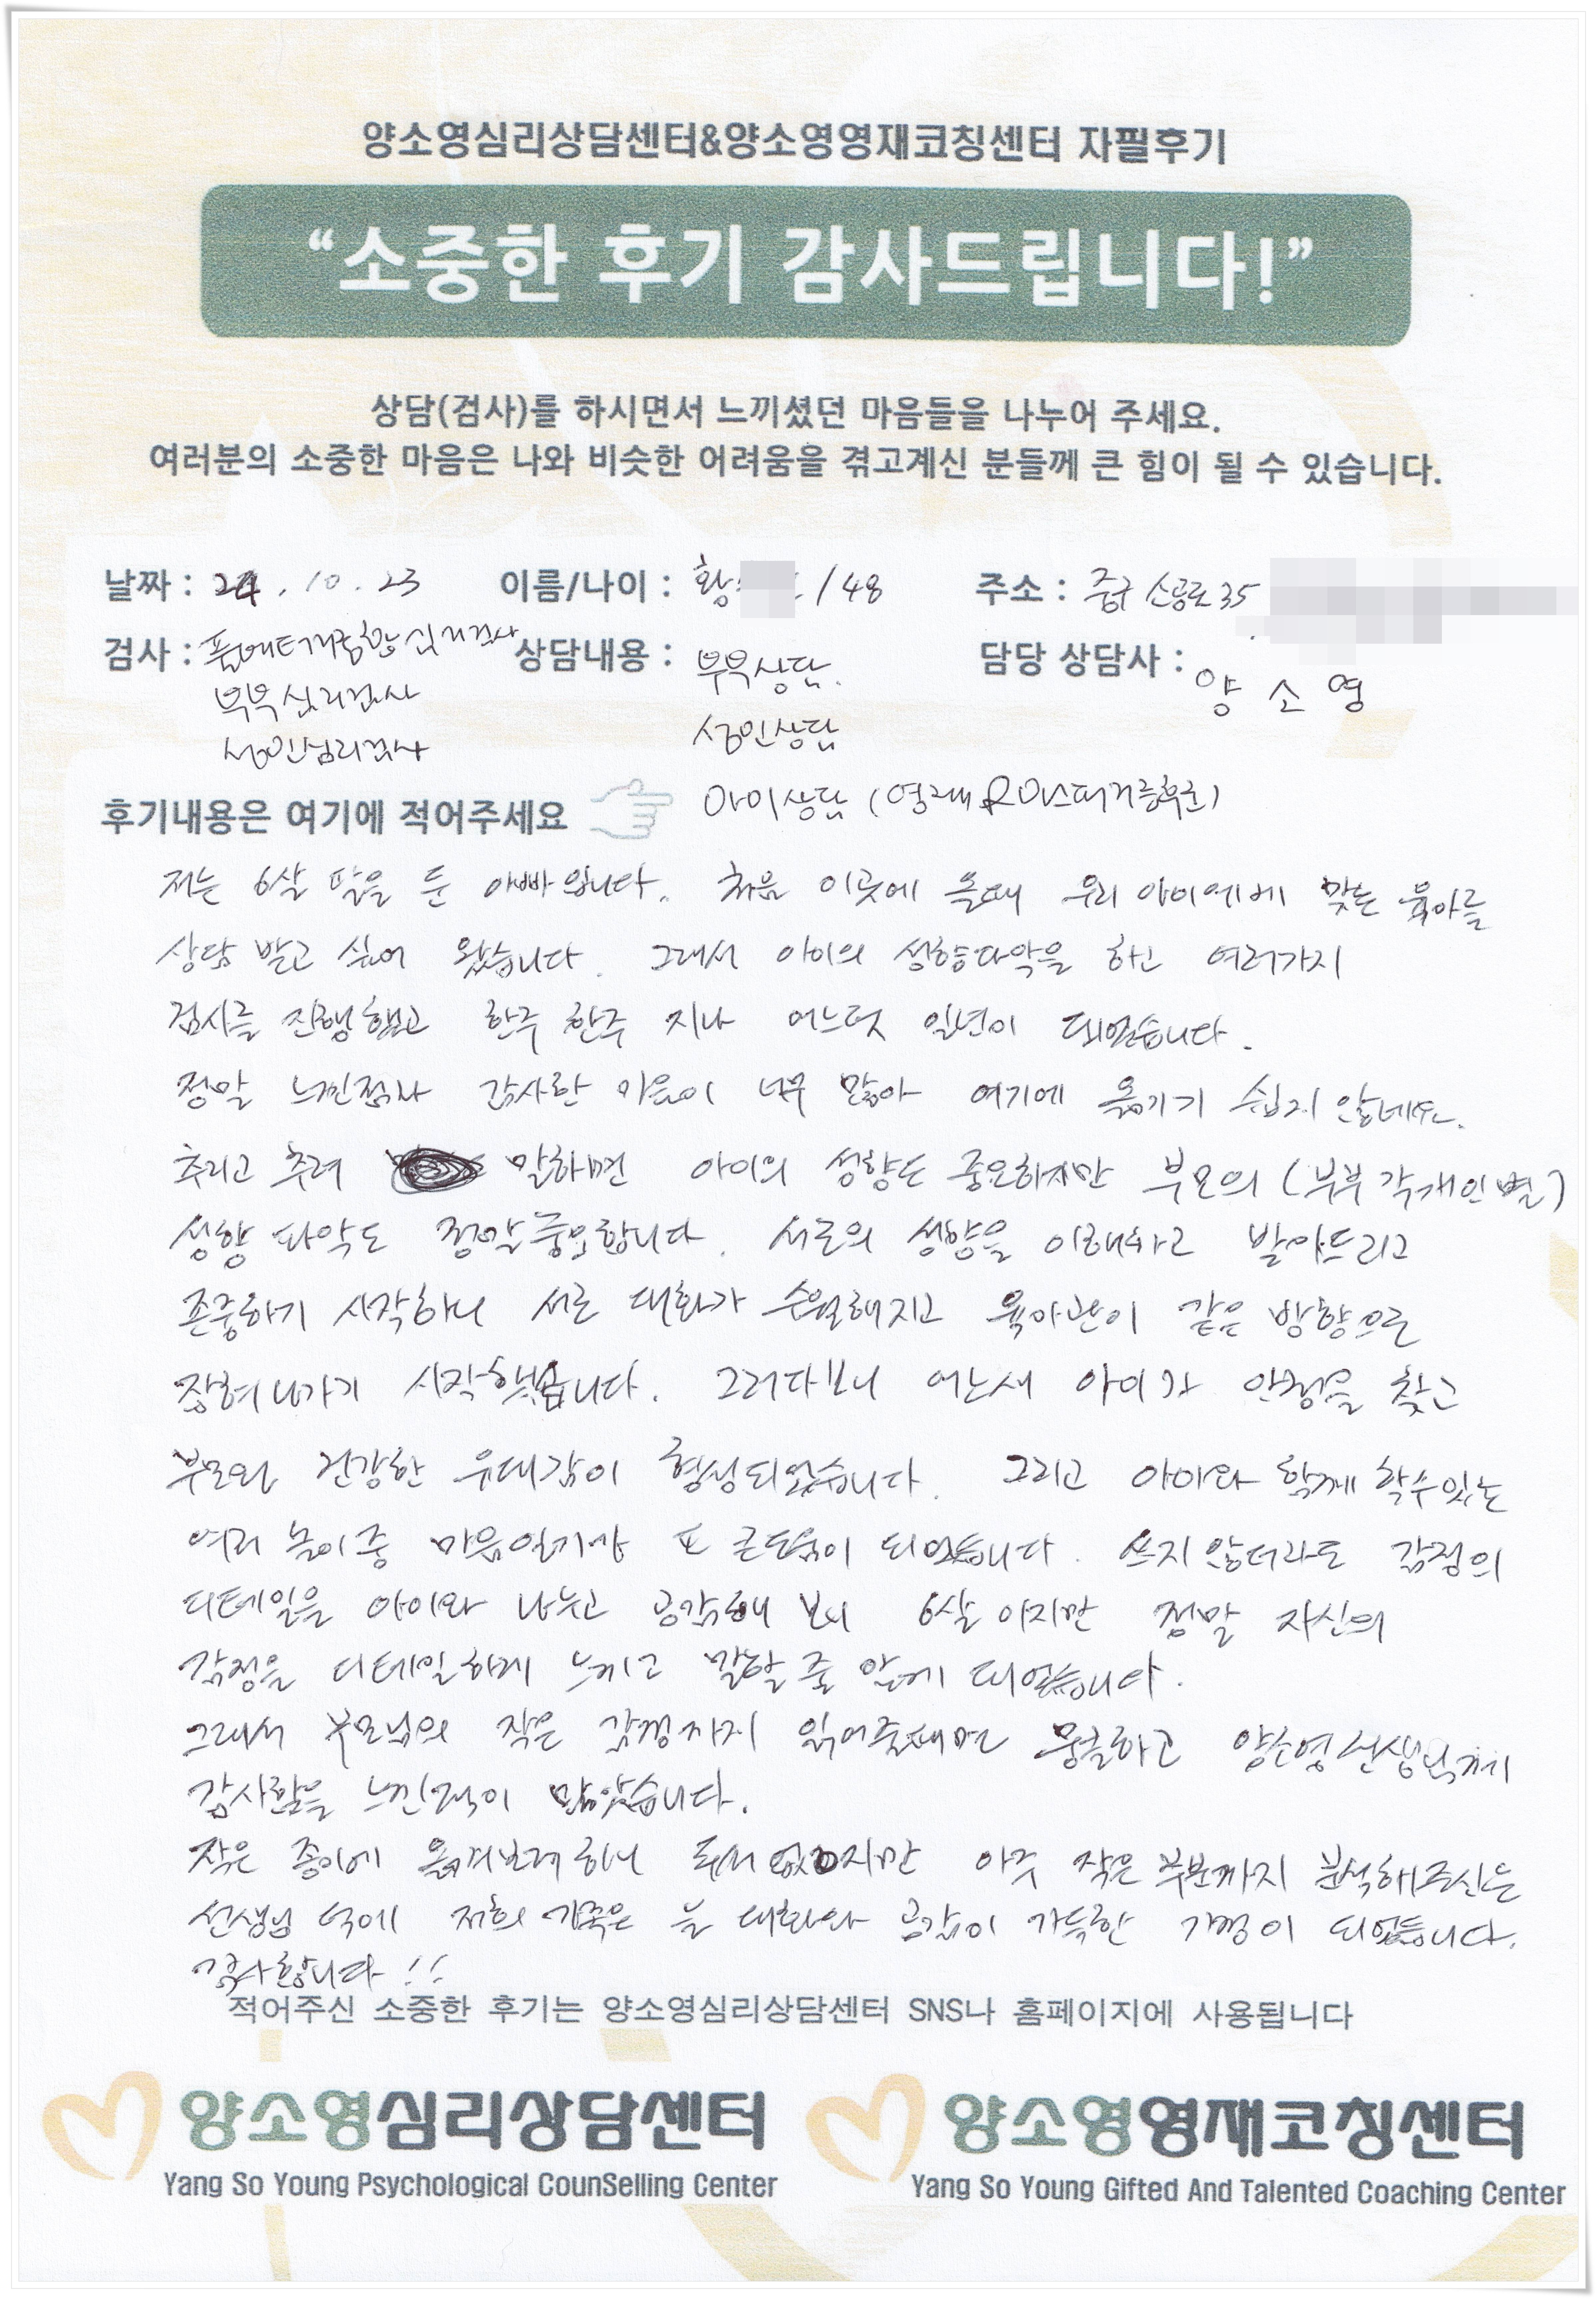 양소영심리상담센터&양소영영재코칭센터 자필후기
“소중한 후기 감사드립니다!”
상담(검사)를 하시면서 느끼셨던 마음들을 나누어 주세요.
여러분의 소중한 마음은 나와 비슷한 어려움을 겪고계신 분들께 큰 힘이 될 수 있습니다.
날짜 : 24. 10. 23 이름/나이 : 황 / 48 주소 : 중구 소공로 35
검사 : 풀배터리종합심리검사 상담내용 : 부부상담. 담당 상담사 : 양 소 영
부부심리검사
성인심리검사 성인상담
후기내용은 여기에 적어주세요 아이상담 (영재 & 아스퍼거증후군)
저는 6살 딸을 둔 아빠입니다. 처음 이곳에 올때 우리 아이에게 맞는 육아를
상담 받고 싶어 왔습니다. 그래서 아이의 성향파악을 하고 여러가지
검사를 진행했고 한주 한주 지나 어느덧 일년이 되었습니다.
정말 느낀점과 감사한 마음이 너무 많아 여기에 옮기기 쉽지 않네요.
추리고 추려 말하면 아이의 성향도 중요하지만 부모의 (부부 각개인별)
성향 파악도 정말중요합니다. 서로의 성향을 이해하고 받아드리고
존중하기 시작하니 서로 대화가 수월해지고 육아관이 같은 방향으로
잡혀나가기 시작했습니다. 그러다보니 어느새 아이가 안정을 찾고
부모와 건강한 유대감이 형성되었습니다. 그리고 아이와 함께 할수있는
여러 놀이중 마음일기가 또 큰도움이 되었습니다. 쓰지 않더라도 감정의
디테일을 아이와 나누고 공감해 보니 6살 이지만 정말 자신의
감정을 디테일하게 느끼고 말할 줄 알게 되었습니다.
그래서 부모님의 작은 감정까지 읽어줄때면 뭉클하고 양소영선생님께
감사함을 느낀적이 많았습니다.
작은 종이에 옮겨보려 하니 두서 없지만 아주 작은 부분까지 분석해주신는
선생님 덕에 저희 가족은 늘 대화와 공감이 가득한 가정이 되었습니다.
감사합니다!!
적어주신 소중한 후기는 양소영심리상담센터 SNS나 홈페이지에 사용됩니다
양소영심리상담센터 양소영영재코칭센터
Yang So Young Psychological CounSelling Center Yang So Young Gifted And Talented Coaching Center